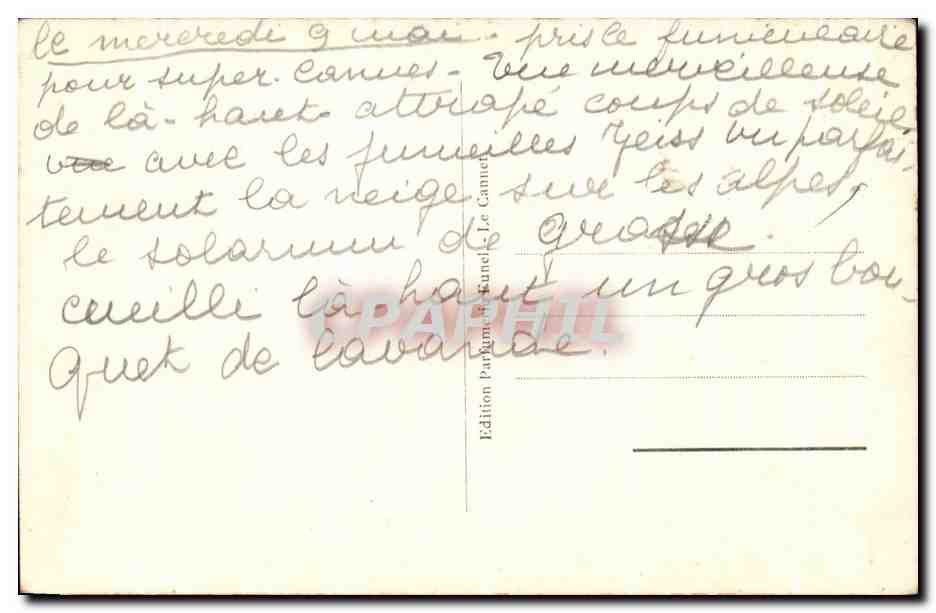 le mercredi 9 mai - pris le funiculaire
pour super-Cannes - Vue merveilleuse
de là-haut - attrapé coups de soleil
avec les jumelles Zeiss vu parfai-
tement la neige sur les alpes,
le solarium de grasse.
cueilli là-haut un gros bou-
quet de lavande.
Edition Parfumerie Funel - Le Cannet
CPAPHIL